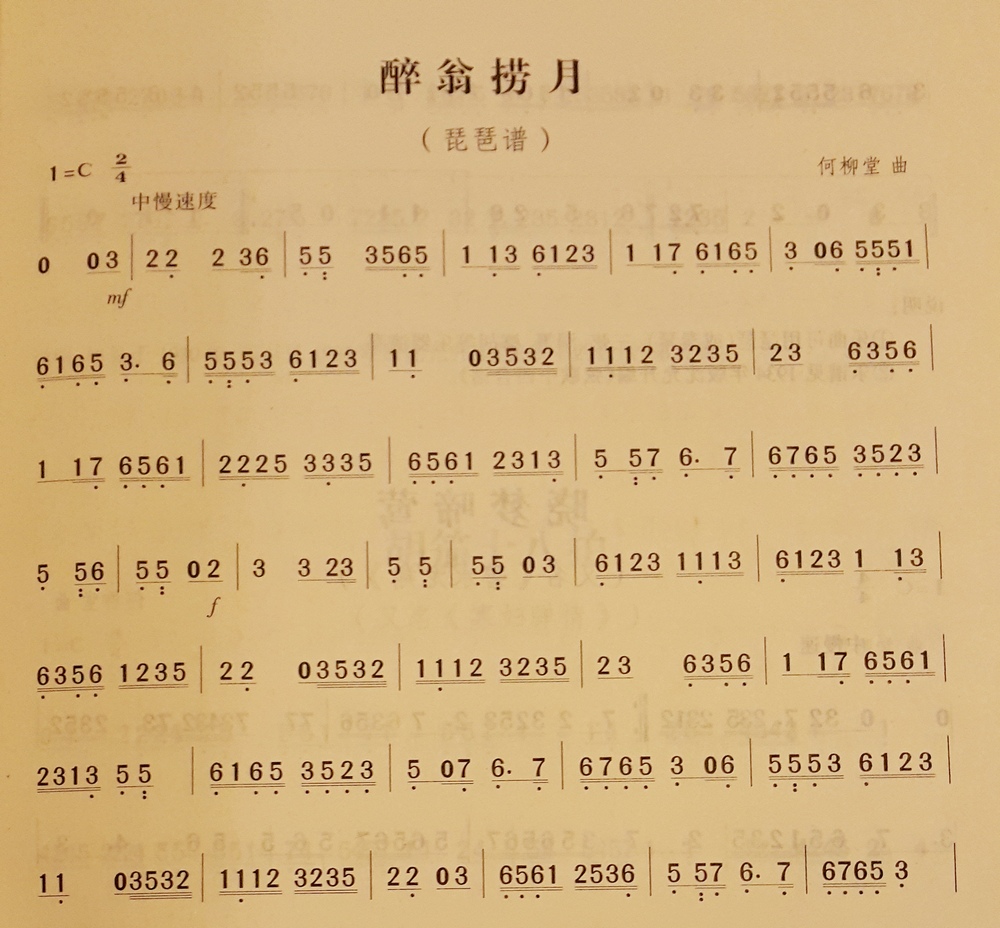 醉翁捞月
(琵琶谱)
1=C 2/4
何柳堂 曲
中慢速度
0 03 | 22 2 36 | 55 3565 | 1 13 6123 | 1 17 6165 | 3 06 5551 |
mf
6165 3· 6 | 5553 6123 | 11 03532 | 1112 3235 | 23 6356 |
1 17 6561 | 2225 3335 | 6561 2313 | 5 57 6· 7 | 6765 3523 |
5 56 | 55 02 | 3 3 23 | 5 5 | 55 03 | 6123 1113 | 6123 1 13 |
f
6356 1235 | 22 03532 | 1112 3235 | 23 6356 | 1 17 6561 |
2313 55 | 6165 3523 | 5 07 6· 7 | 6765 3 06 | 5553 6123 |
11 03532 | 1112 3235 | 22 03 | 6561 2536 | 5 57 6· 7 | 6765 3 |